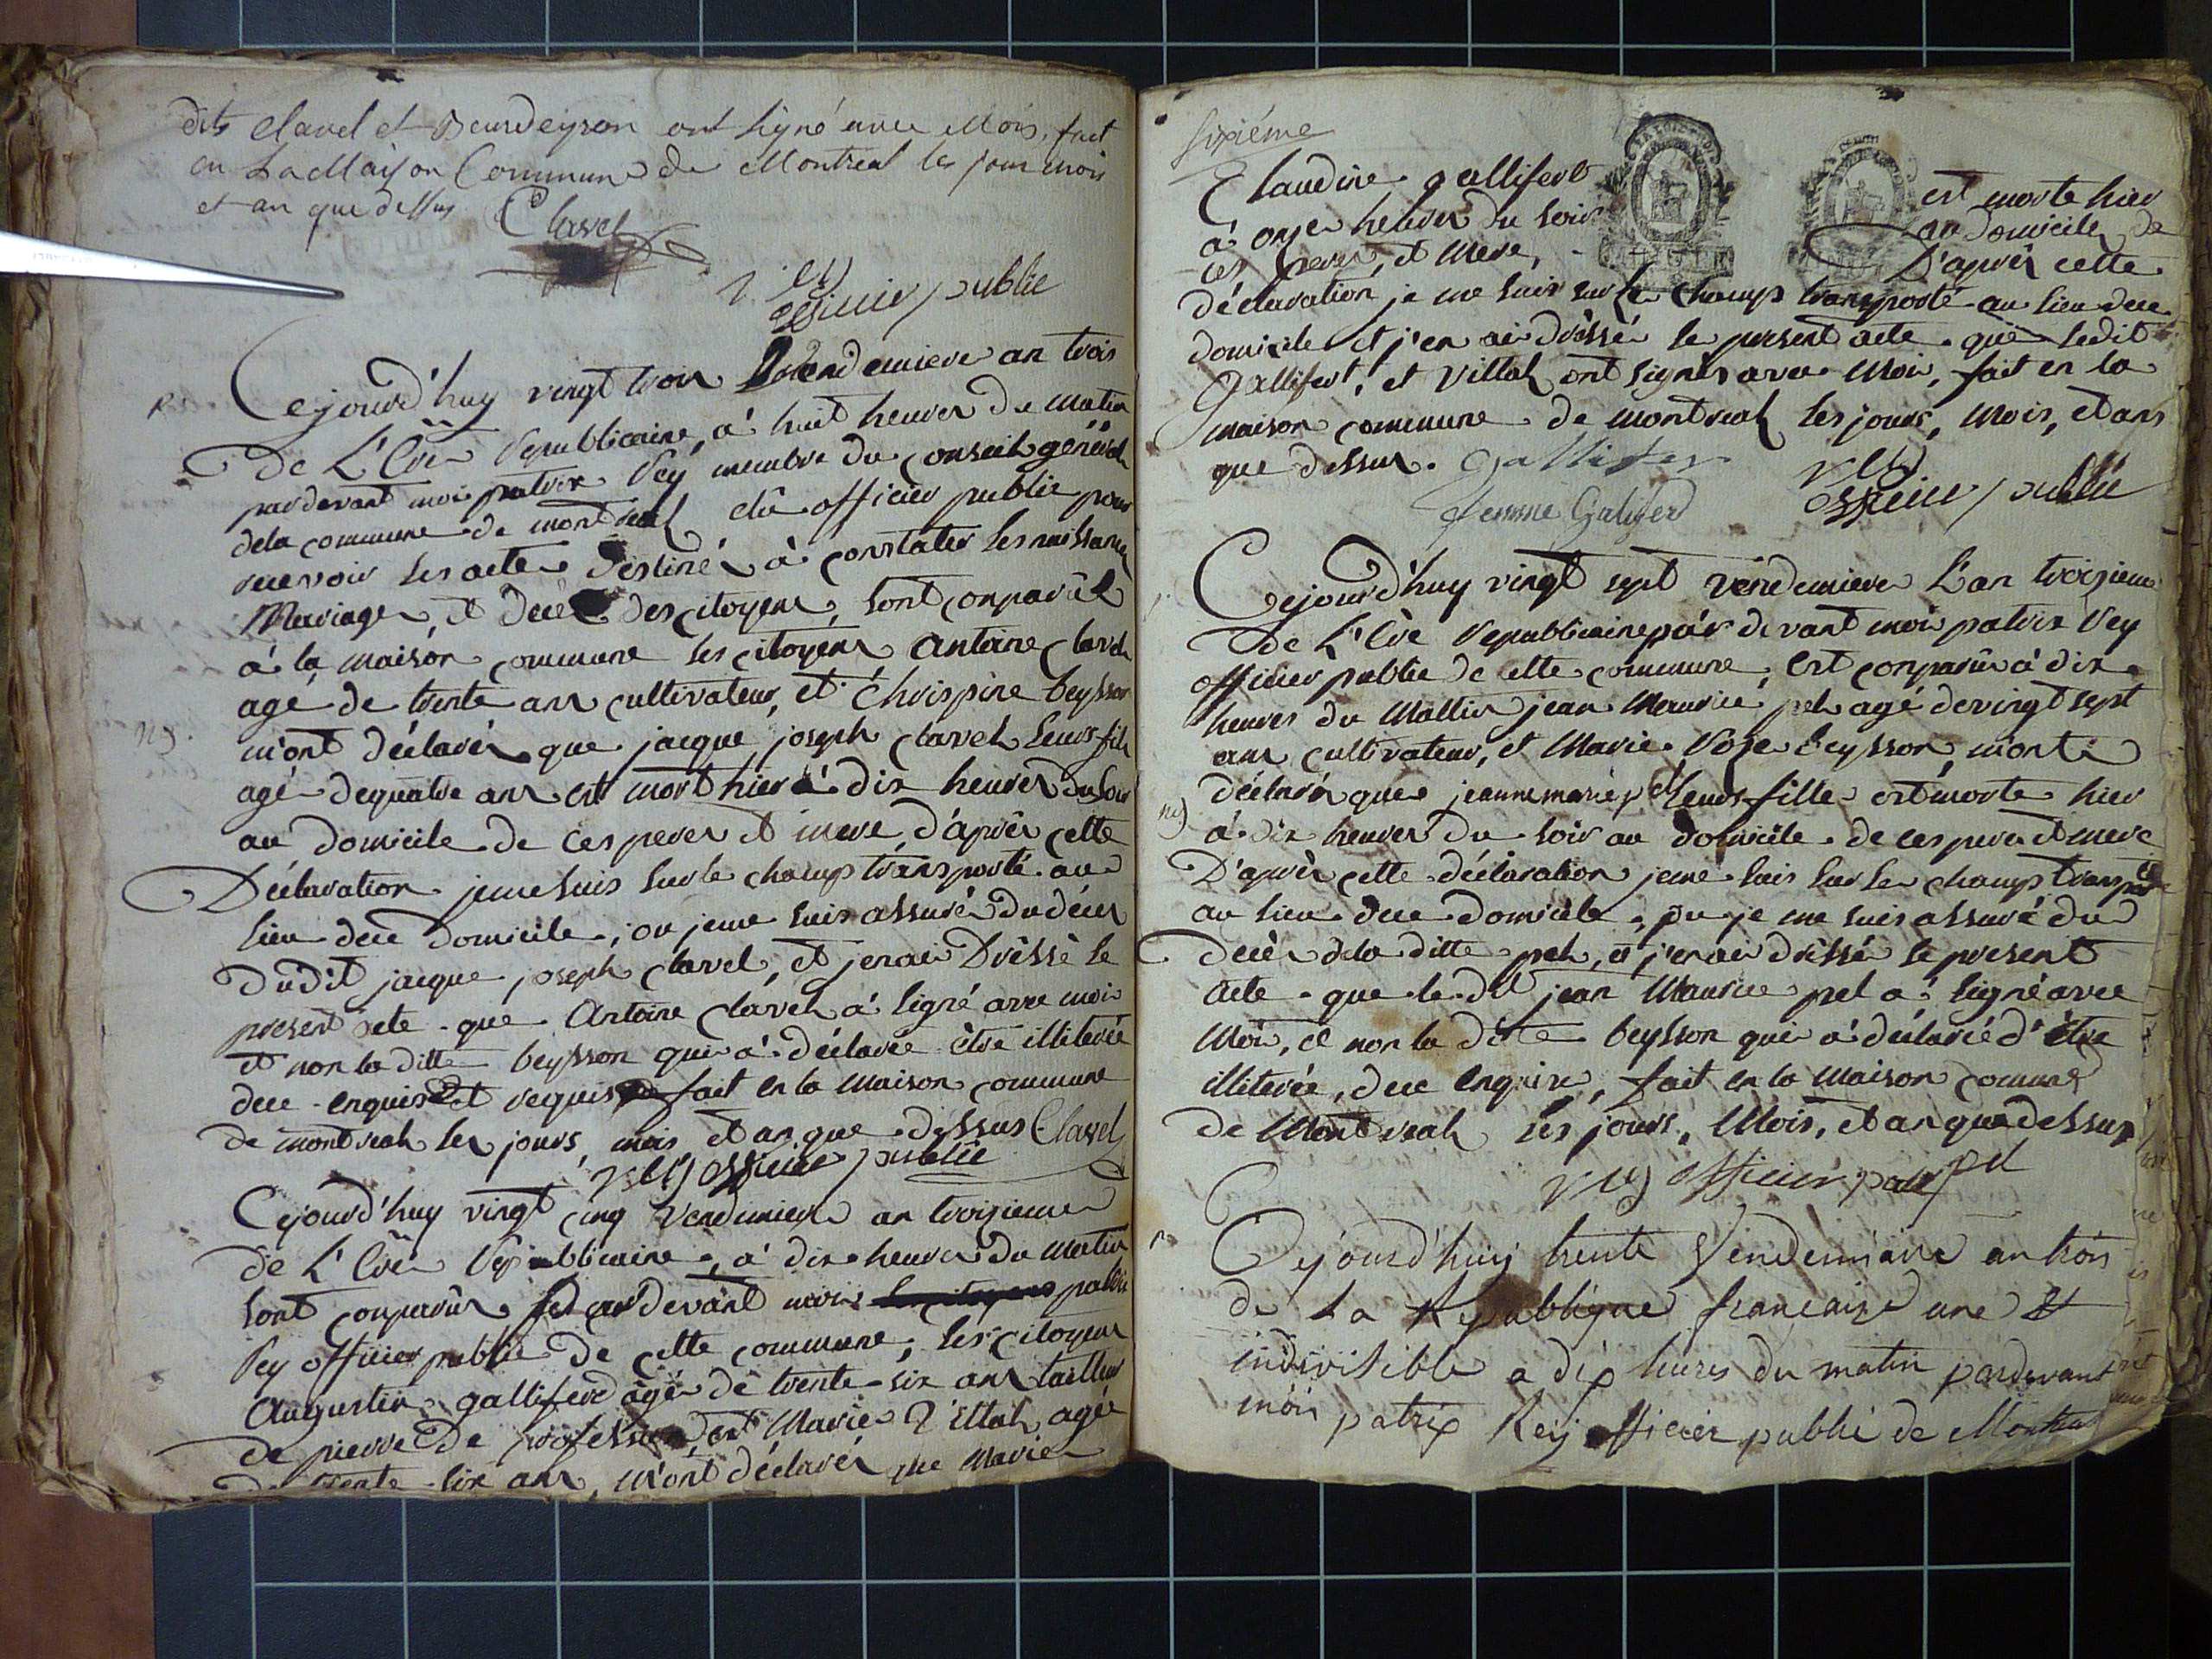 dits Clavel et Beurdeyron ont signé avec Mois, fait
en La Maison Commune de Montreal les jour mois
et an que dessus Clavel
Rey
officier public
Cejourd'huy vingt trois Vendemiere an trois
De L'Ere Republicaine, à huit heures du matin
pardevant moi patrix Rey membre du conseil général
dela commune de montreal élu officier public pour
recevoir les actes destinés à constater les naissances
Mariages, et decès des citoyens, sont comparût
à la maison commune les citoyens antoine Clavel
agé de trente ans cultivateur, et Chrispine beysson
m'ont déclarés que jacque joseph clavel leurs fils
agé dequatre ans est mort hier à dix heures du soir
au domicile de ces peres et mere, d'après cette
Déclaration jemesuis surle champs transporté au
lieu dece domicile, ou jeme suis assuré du décès
dudit jacque joseph clavel, et jenai Drèssè le
present acte que Antoine clavel à signé avec moi
et non la ditte beysson qui à déclarée être illiterée
dece enquis et requis fait en la Maison commune
de montreal les jours, mois et an que dessus Clavel
Rey officier public
Cejourd'huy vingt cinq Vendemiere an troisieme
de L'Ere Republicaine, à dix heures du Matin
sont comparûs pardevant moi patrix
Rey officier public de cette commune, les citoyens
Augustin galliferd âgé de trente-six ans tailleur
de pierre de profession, et Marie Vittal, agée
de trente-six ans, m'ont déclarés que Marie
sixiéme
Claudine gallifert est morte hier
à onze heures du soir au domicile de
ces peres, et mere, D'après cette
déclaration je me suis sur le champs transporté au lieu dece
domicile et j'en ai drèssé le present acte que ledit
Gallifert, et Vittal ont signés avec Moi, fait en la
maison commune de montreal les jours, mois, et ans
que dessus. Gallifer Rey
femme Galiferd officier public
Cejourd'huy vingt sept vendemiere L'an troisieme
De L'Ere Republicaine par devant moi patrix Rey
officier public de cette commune, est comparûs à dix
heures du Mattin jean Maurice pel agé devingt sept
ans cultivateur, et Marie Rose beysson, m'ont
déclarés que jeannemarie pel leurs fille est morte hier
à dix heures du soir au domicile de ces peres et mere
D'après cette déclaration jeme suis sur le champs transporté
au lieu dece domicile, ou je me suis assuré du
Decès dela ditte pel, et j'en ai drèssé le present
acte que le dit jean Maurice pel a signé avec
Moi, et non la ditte beysson qui a déclarée d'être
illiterée, dece enquise, fait en la Maison commune
de Montreal les jours, Mois, et an que dessus
Rey officier public pel
Cejourd'huy trente Vendemiaire an trois
de La Republique française une et
indivisible a dix heures du matin pardevant
moi patrix Rey officier public de Montreal